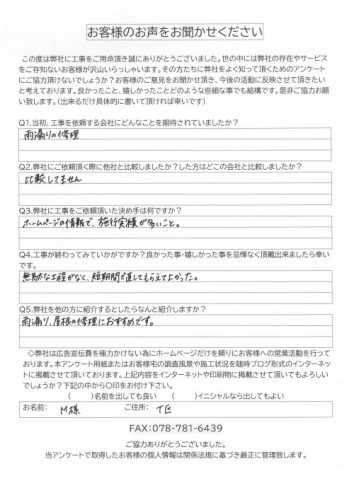 お客様のお声をお聞かせください
この度は弊社に工事をご用命頂き誠にありがとうございました。世の中には弊社の存在やサービス
をご存知ないお客様が沢山いらっしゃいます。その方たちに弊社をよく知って頂くためのアンケート
にご協力頂けないでしょうか?お客様のご意見をお聞かせ頂き、今後の活動に反映させて頂きたい
と考えております。良かったこと、嬉しかったことどのような些細な事でも結構です。是非ご協力お願
い致します。(出来るだけ具体的に書いて頂ければ幸いです)
Q1.当初、工事を依頼する会社にどんなことを期待されていましたか?
雨漏りの修理
Q2.弊社にご依頼頂く際に他社と比較しましたか?した方はどこの会社と比較しましたか?
比較してません
Q3.弊社に工事をご依頼頂いた決め手は何ですか?
ホームページの情報で、施行実績が多いこと。
Q4.工事が終わってみていかがですか?良かった事・嬉しかった事を忌憚なく頂戴出来ましたら幸い
です。
無駄な工程がなく、短期間で直してもらえてよかった。
Q5.弊社を他の方に紹介するとしたらなんと紹介しますか?
雨漏り、屋根の修理におすすめです。
◇弊社は広告宣伝費を極力かけない為にホームページだけを頼りにお客様への営業活動を行って
おります。本アンケート用紙またはお客様宅の調査風景や施工状況を随時ブログ形式のインターネッ
トに掲載させて頂いております。上記内容をインターネットや印刷物に掲載させて頂いてもよろしい
でしょうか?下記の中から〇印をお付け下さい。
( )名前を出しても良い ( )イニシャルなら出してもよい
お名前: M様 ご住所: T区
FAX:078-781-6439
ご協力ありがとうございました。
当アンケートで取得したお客様の個人情報は関係法規に基づき厳正に管理致します。